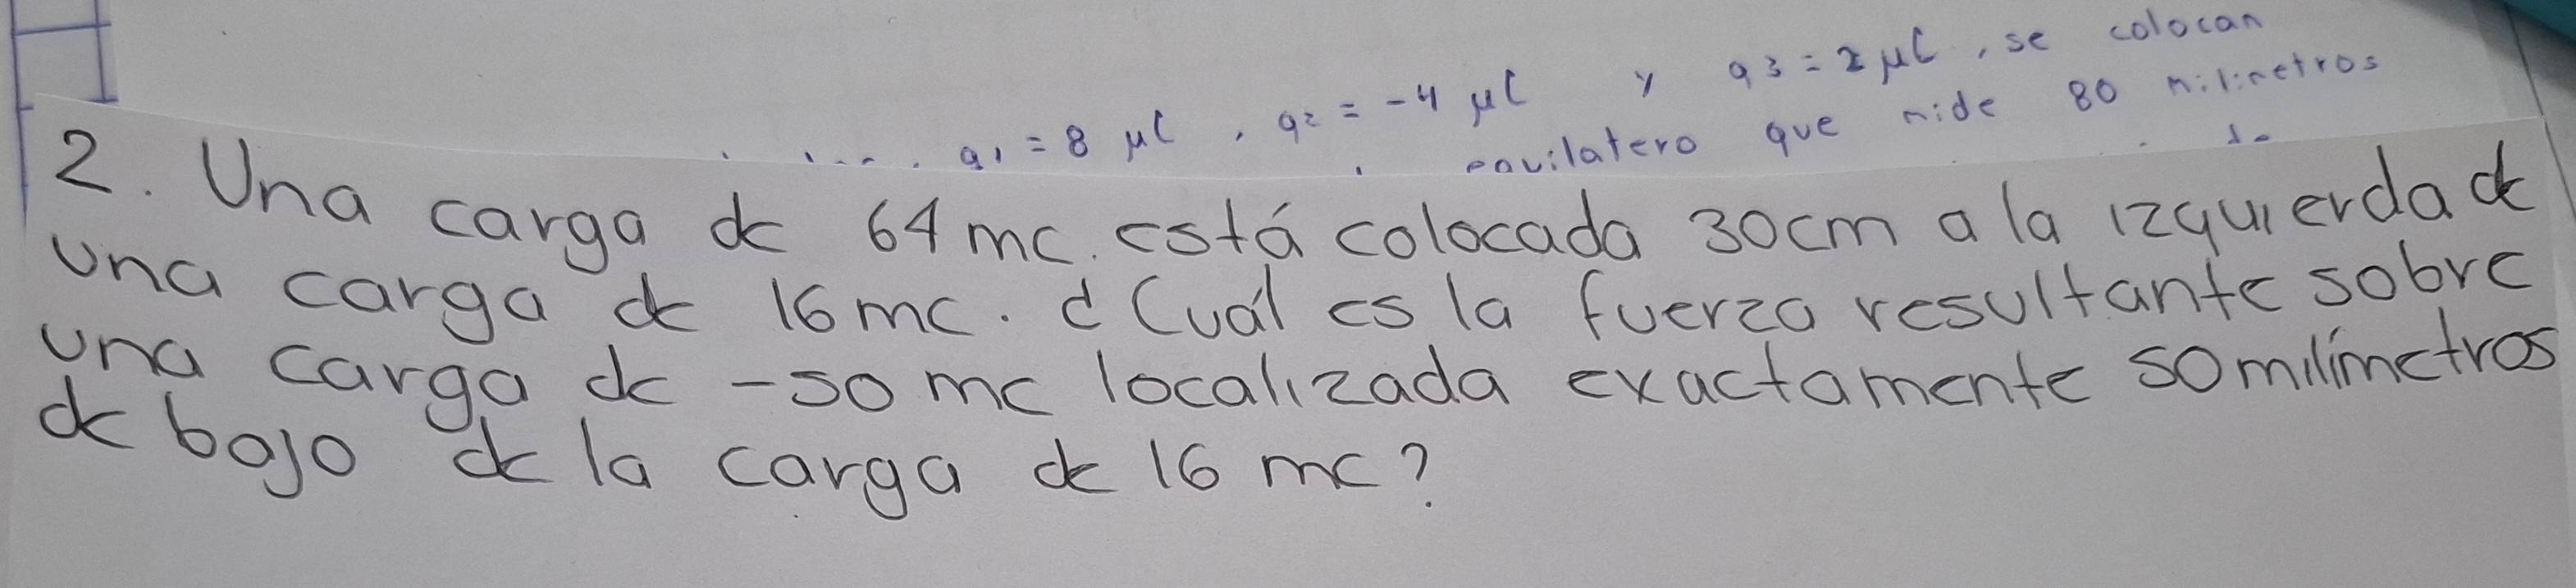 q1 = 8 μC , q2 = -4 μC y q3 = 2 μC , se colocan
equilatero que mide 80 milimetros
2. Una carga de 64 mc. está colocada 30cm a la izquierda de
una carga de 16 mc. ¿Cuál es la fuerza resultante sobre
una carga de -50 mc localizada exactamente 50 milímetros
de bajo de la carga de 16 mc?